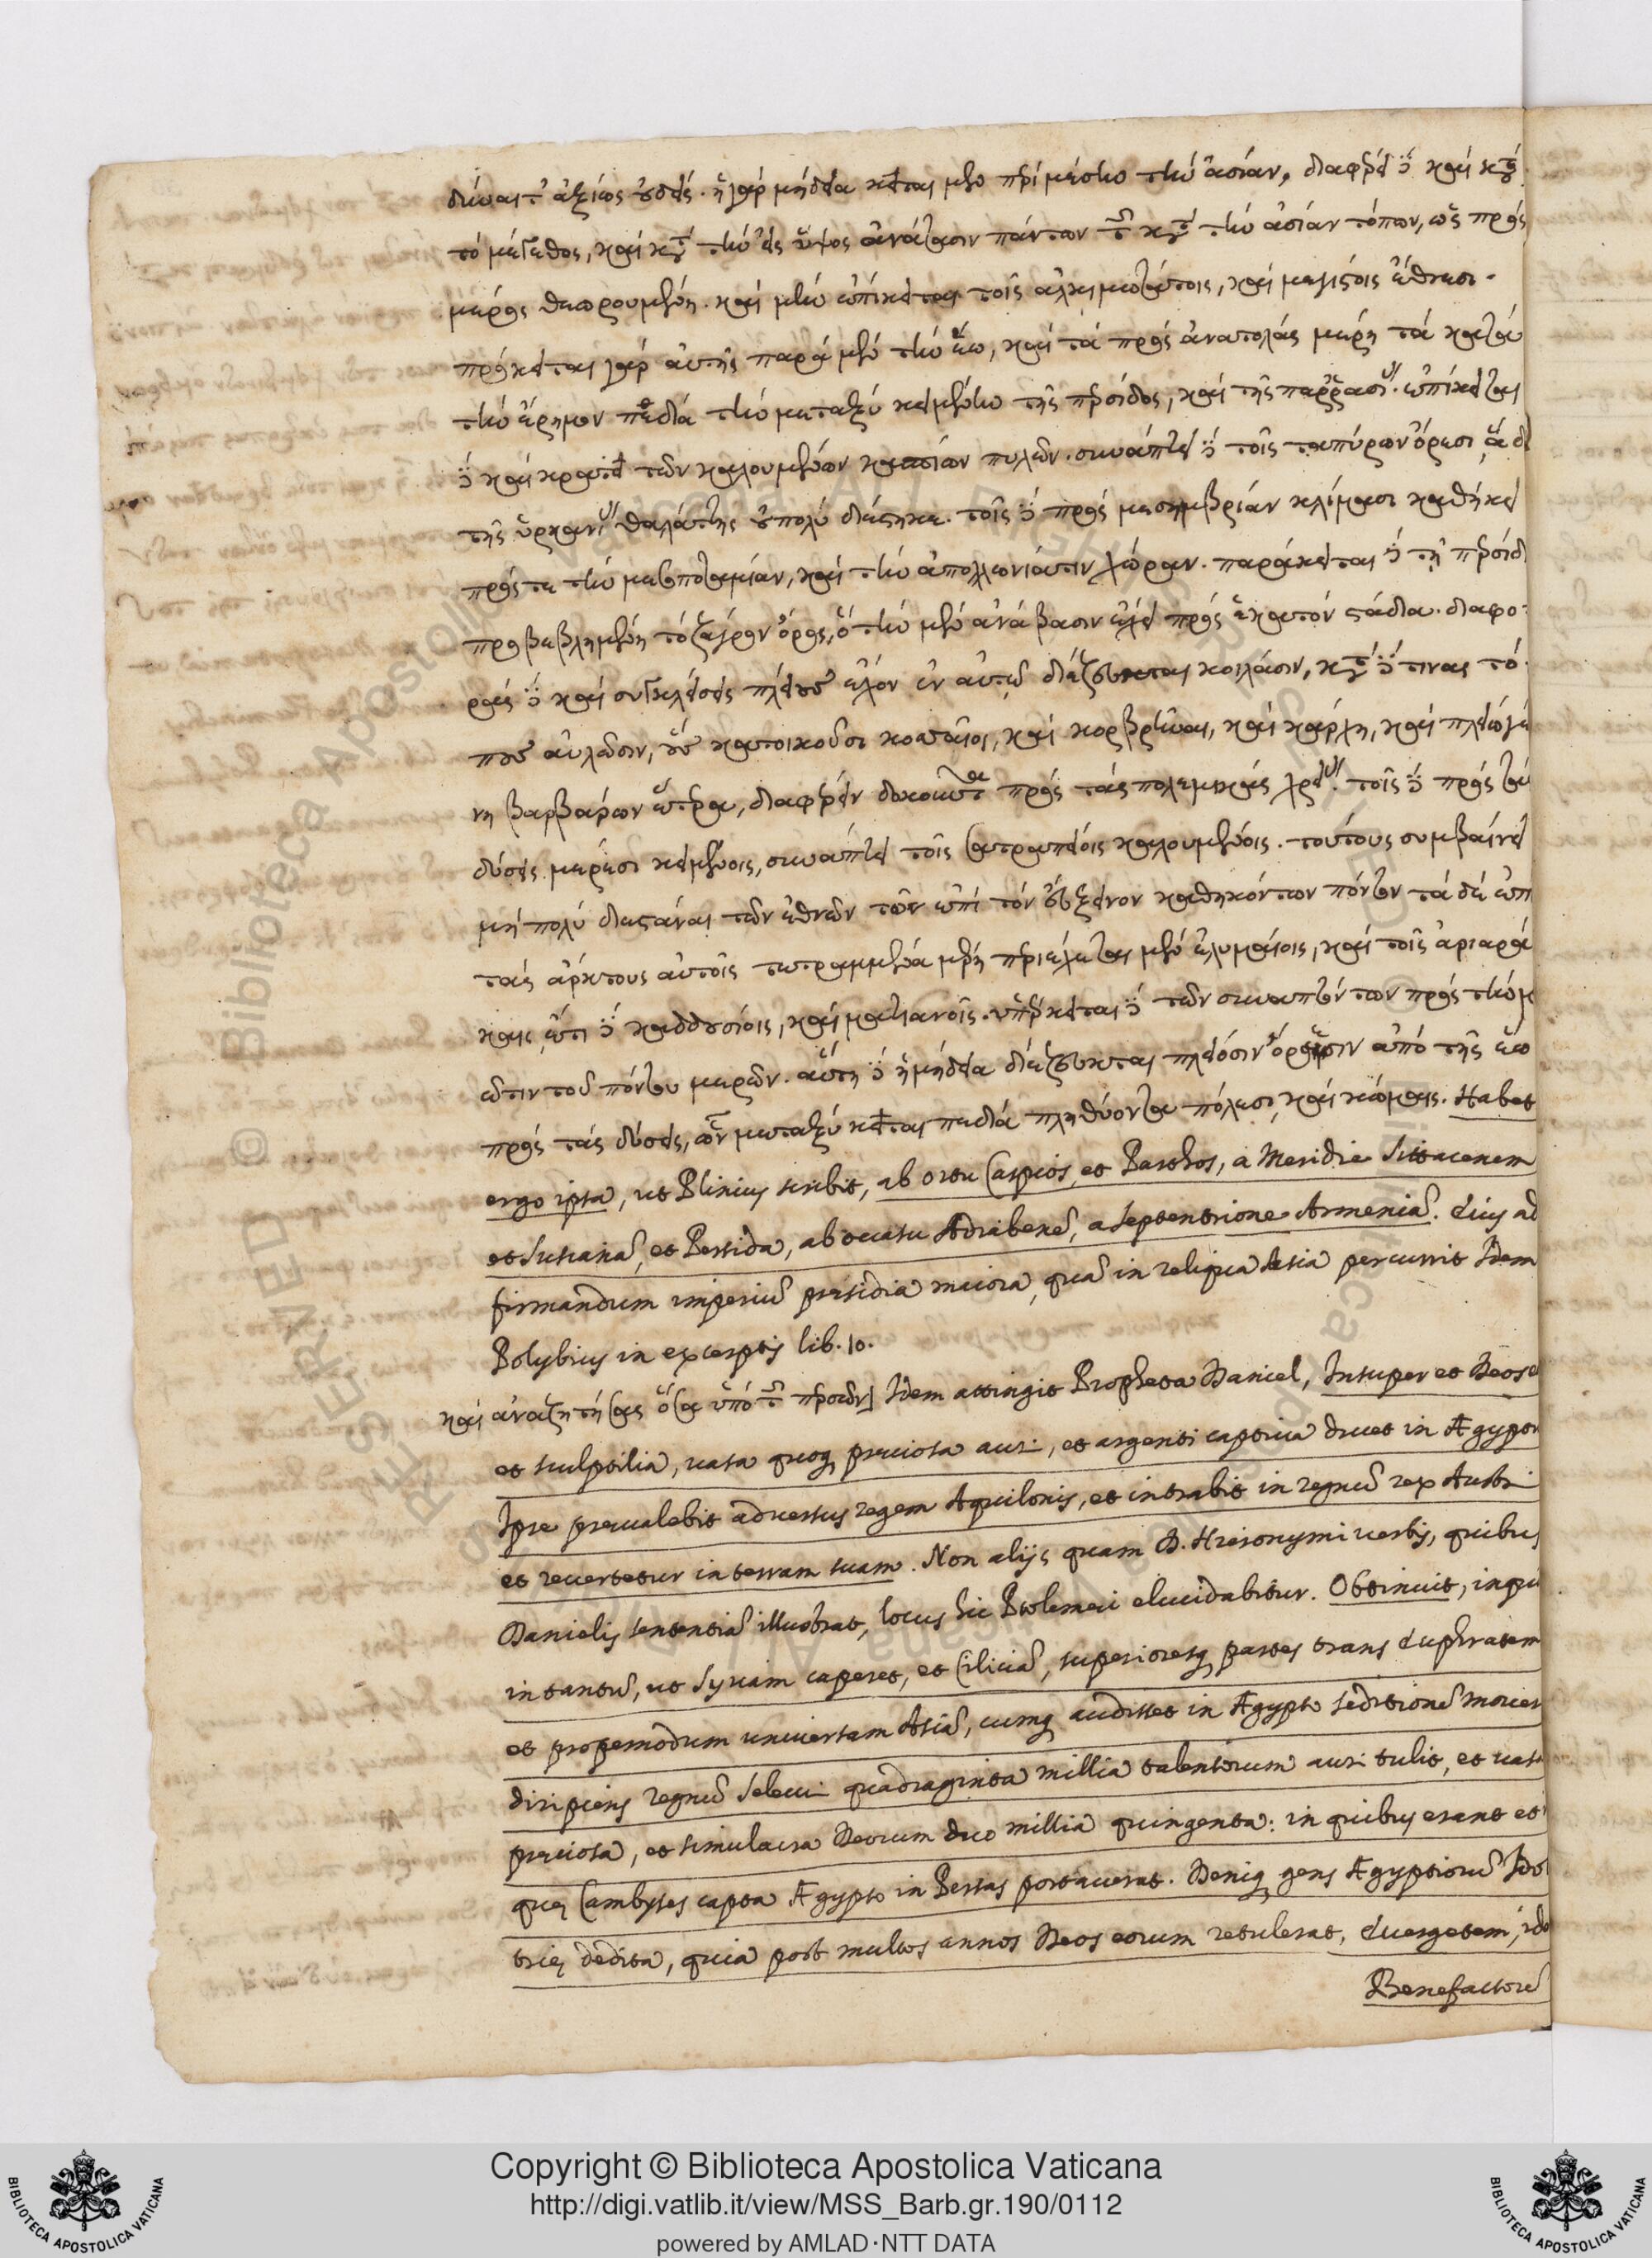 δύναιτ' ἀξίως οὐδείς. ἡ γὰρ μήδεια κεῖται μὲν περὶ μέσην τὴν ἀσίαν, διαφέρει δὲ καὶ κατὰ
τὸ μέγεθος, καὶ κατὰ τὴν εἰς ὕψος ἀνάτασιν πάντων τῶν κατὰ τὴν ἀσίαν τόπων, ὡς πρὸς
μέρος θεωρουμένη. καὶ μὴν ἐπίκειται τοῖς ἀλκιμωτάτοις, καὶ μεγίστοις ἔθνεσι.
πρόκειται γὰρ αὐτῆς παρὰ μὲν τὴν ἕω, καὶ τὰ πρὸς ἀνατολὰς μέρη τὰ κατὰ
τὴν ἔρημον πεδία τὴν μεταξὺ κειμένην τῆς περσίδος, καὶ τῆς παρρασίας. ἐπίκειται
δὲ καὶ κρατεῖ τῶν καλουμένων κασπίων πυλῶν. συνάπτει δὲ τοῖς ταπύρων ὄρεσι, ἃ δὴ
τῆς ὑρκανίας θαλάττης οὐ πολὺ διέστηκε. τοῖς δὲ πρὸς μεσημβρίαν κλίμασι καθήκει
πρός τε τὴν μεσοποταμίαν, καὶ τὴν ἀπολλωνιάτιν χώραν. παράκειται δὲ τῇ περσίδι
προβεβλημένη τὸ ζάγρον ὄρος, ὃ τὴν μὲν ἀνάβασιν ἔχει πρὸς ἑκατὸν στάδια. διαφο-
ρὰς δὲ καὶ συγκλείσεις πλείους ἔχον ἐν αὐτῷ διέζευκται κοιλάσιν, κατὰ δέ τινας τό-
πους αὐλῶσιν, οὓς κατοικοῦσι κοσσαῖοι, καὶ κορβρῆναι, καὶ κάρχη, καὶ πλείω γέ-
νη βαρβάρων ἕτερα, διαφέρειν δοκοῦντα πρὸς τὰς πολεμικὰς χρείας. τοῖς δὲ πρὸς τὰς
δύσεις μέρεσι κειμένοις, συνάπτει τοῖς σατραπείοις καλουμένοις. τούτους συμβαίνει
μὴ πολὺ διεστάναι τῶν ἐθνῶν τῶν ἐπὶ τὸν εὔξεινον καθηκόντων πόντον τὰ δὲ ἐπὶ
τὰς ἄρκτους αὐτοῖς τετραμμένα μέρη περιέχεται μὲν ἐλυμαίοις, καὶ τοῖς ἀριαρά-
καις, ἔτι δὲ καδδουσίοις, καὶ ματιανοῖς. ὑπέρκειται δὲ τῶν συναπτόντων πρὸς τὴν μαι-
ῶτιν τοῦ πόντου μερῶν. αὕτη δὲ ἡ μήδεια διέζευκται πλείοσιν ὄρεσιν ἀπὸ τῆς ἕω
πρὸς τὰς δύσεις, ὧν μεταξὺ κεῖται πεδία πληθύοντα πόλεσι, καὶ κώμαις. Habet
ergo ipsa, ut Plinius scribit, ab ortu Caspios, et Parthos, a Meridie Sittacenem
et Susianā, et Persida, ab occasu Adiabenē, a Septentrione Armeniā. Eius ad
firmandum imperiū præsidia maiora, quā in reliqua Asia percurrit Idem
Polybius in excerptis lib. 10.
καὶ ἀναζητήσας ὅσα ὑπὸ τῶν περσῶν] Idem attingit Propheta Daniel, Insuper et Deos e
et sculptilia, vasa quoq; preciosa auri, et argenti captiva ducet in Ægyptū
Ipse prevalebit adversus regem Aquilonis, et intrabit in regnū rex Austri
et revertetur in terram suam. Non alijs quam D. Hieronymi verbis, quibus
Danielis sententiā illustrat, locus hic Ptolemęi elucidabitur. Obtinuit, inqui
in tantū, ut Syriam caperet, et Ciliciā, superioresq; partes trans Euphratem
et propemodum universam Asiā, cumq; audisset in Ægypto seditionē moveri
diripiens regnū Seleuci quadraginta millia talentorum auri tulit, et vasa
preciosa, et simulacra Deorum duo millia quingenta: in quibus erant et
quę Cambyses capta Ægypto in Persas portaverat. Deniq; gens Ægyptiorū Ido
trię dedita, quia post multos annos Deos eorum retulerat, Evergetem, ido
Benefactorē
Copyright © Biblioteca Apostolica Vaticana
http://digi.vatlib.it/view/MSS_Barb.gr.190/0112
powered by AMLAD·NTT DATA
BIBLIOTECA APOSTOLICA VATICANA
BIBLIOTECA APOSTOLICA VATICANA